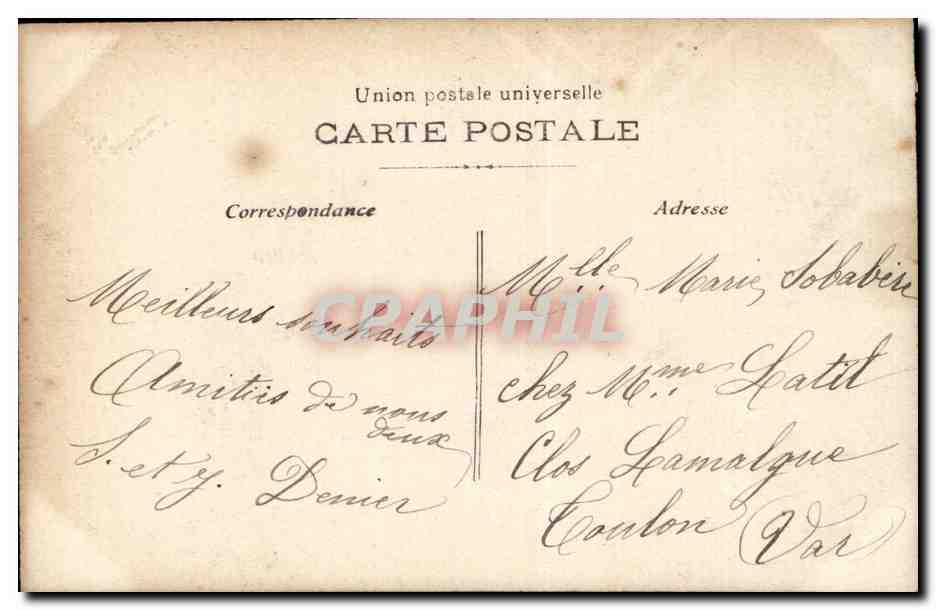 Union postale universelle
CARTE POSTALE
Correspondance
Meilleurs souhaits
Amitiés de nous
deux
S. et y. Denier
Adresse
Mlle Marie Sobabère
chez Mme Latil
Clos Lamalgue
Toulon (Var)
CPAPHIL